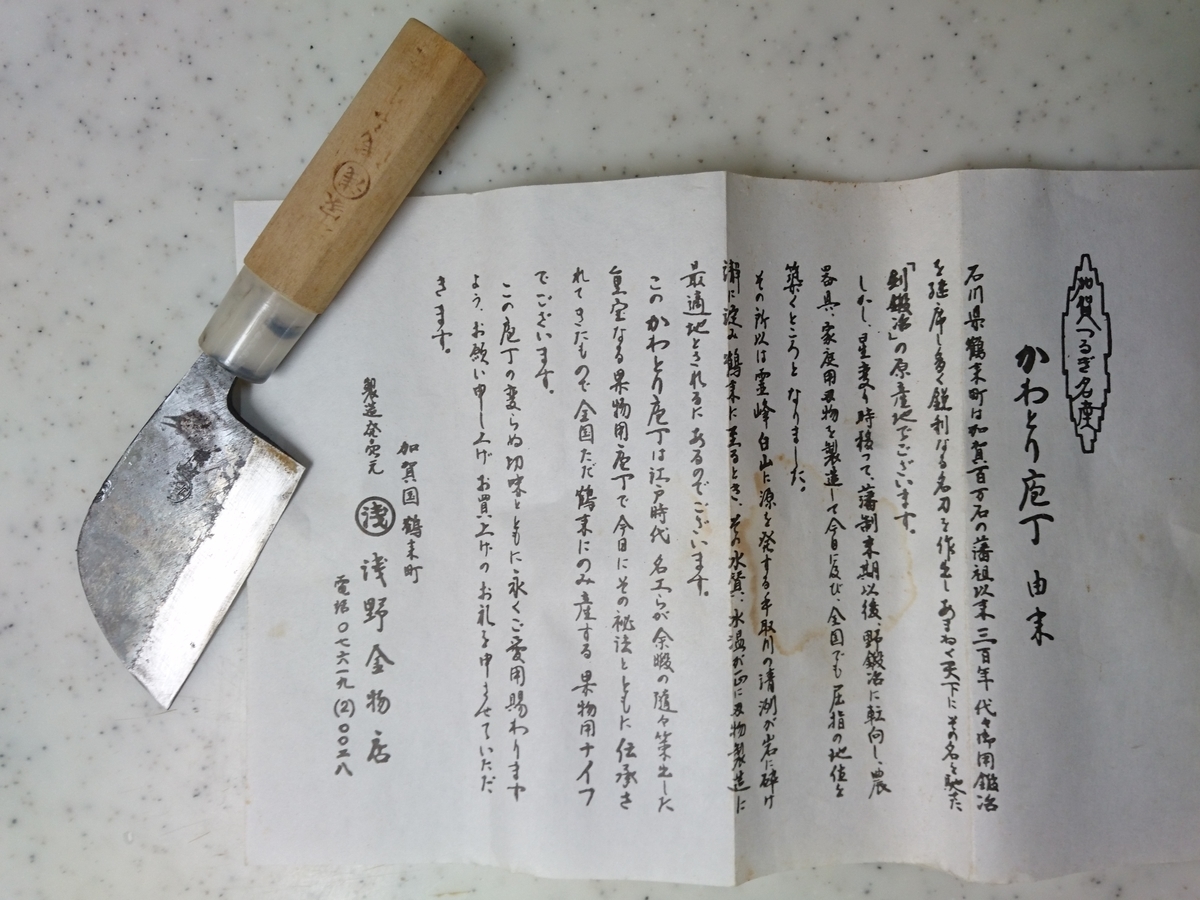 加賀つるぎ名産
かわとり庖丁 由来
石川県鶴来町は加賀百万石の藩祖以来三百年代々御用鍛冶
を継席し多く鋭利なる名刀を作出しあまねく天下にその名を馳た
「剣鍛冶」の原産地でございます。
しかし、星変り時移って、藩制末期以後、野鍛冶に転向し、農
器具、家庭用刃物を製造して今日に及び、全国でも屈指の地位を
築くところとなりました。
その所以は霊峰白山に源を発する手取川の清渕が岩に砕け
瀬に淀み鶴来に至るとき、その水質、水温が正に刃物製造に
最適地とされるにあるのでございます。
このかわとり庖丁は江戸時代 名工らが余暇の随々築出した
重宝なる果物用庖丁で今日にその秘法とともに伝承さ
れてきたもので全国ただ鶴来にのみ産する果物用ナイフ
でございます。
この庖丁の変らぬ切味とともに永くご愛用賜わります
よう、お願い申し上げお買上げのお礼を申させていただ
きます。
加賀国鶴来町
製造発売元 浅 浅野金物店
電話〇七六一九(2)〇〇二八